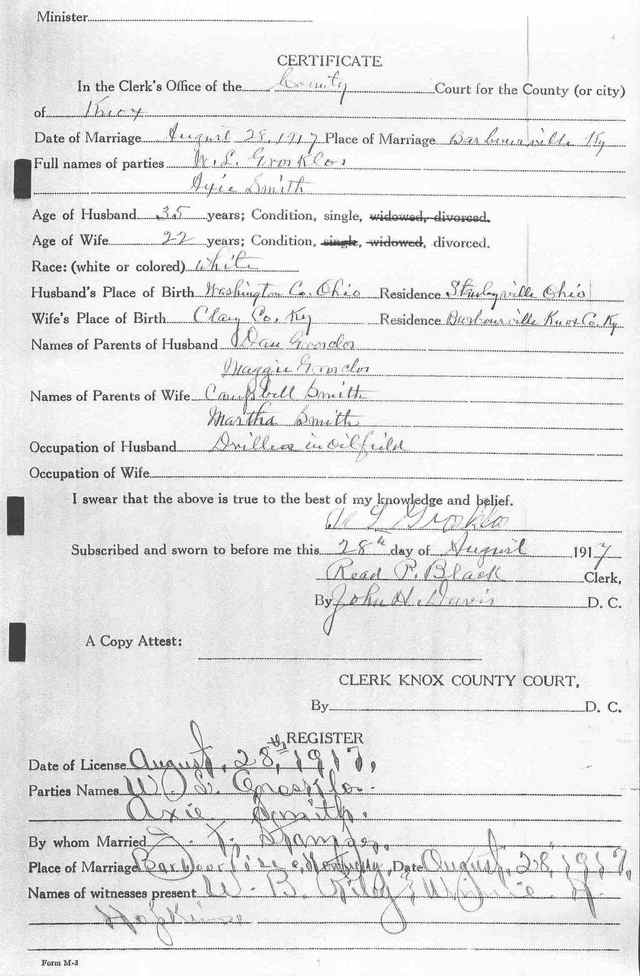 Minister
CERTIFICATE
In the Clerk's Office of the County Court for the County (or city)
of Knox
Date of Marriage August 28, 1917 Place of Marriage Barbourville Ky
Full names of parties W. L. Grosklos
Smith
Age of Husband 35 years; Condition, single, widowed, divorced.
Age of Wife 22 years; Condition, single, widowed, divorced.
Race: (white or colored) White
Husband's Place of Birth Washington Co. Ohio Residence Ohio
Wife's Place of Birth Clay Co. Ky Residence Barbourville Knox Co. Ky
Names of Parents of Husband Dan
Maggie
Names of Parents of Wife Campbell Smith
Martha Smith
Occupation of Husband Driller in oil field
Occupation of Wife
I swear that the above is true to the best of my knowledge and belief.
W L
Subscribed and sworn to before me this 28th day of August 1917
Read P. Black Clerk,
By John H. Davis D. C.
A Copy Attest:
CLERK KNOX COUNTY COURT,
By D. C.
REGISTER
Date of License August, 28th, 1917,
Parties Names W. L.
Axie Smith.
By whom Married
Place of Marriage Date August, 28, 1917,
Names of witnesses present W. B.
Hopkins
Form M-3